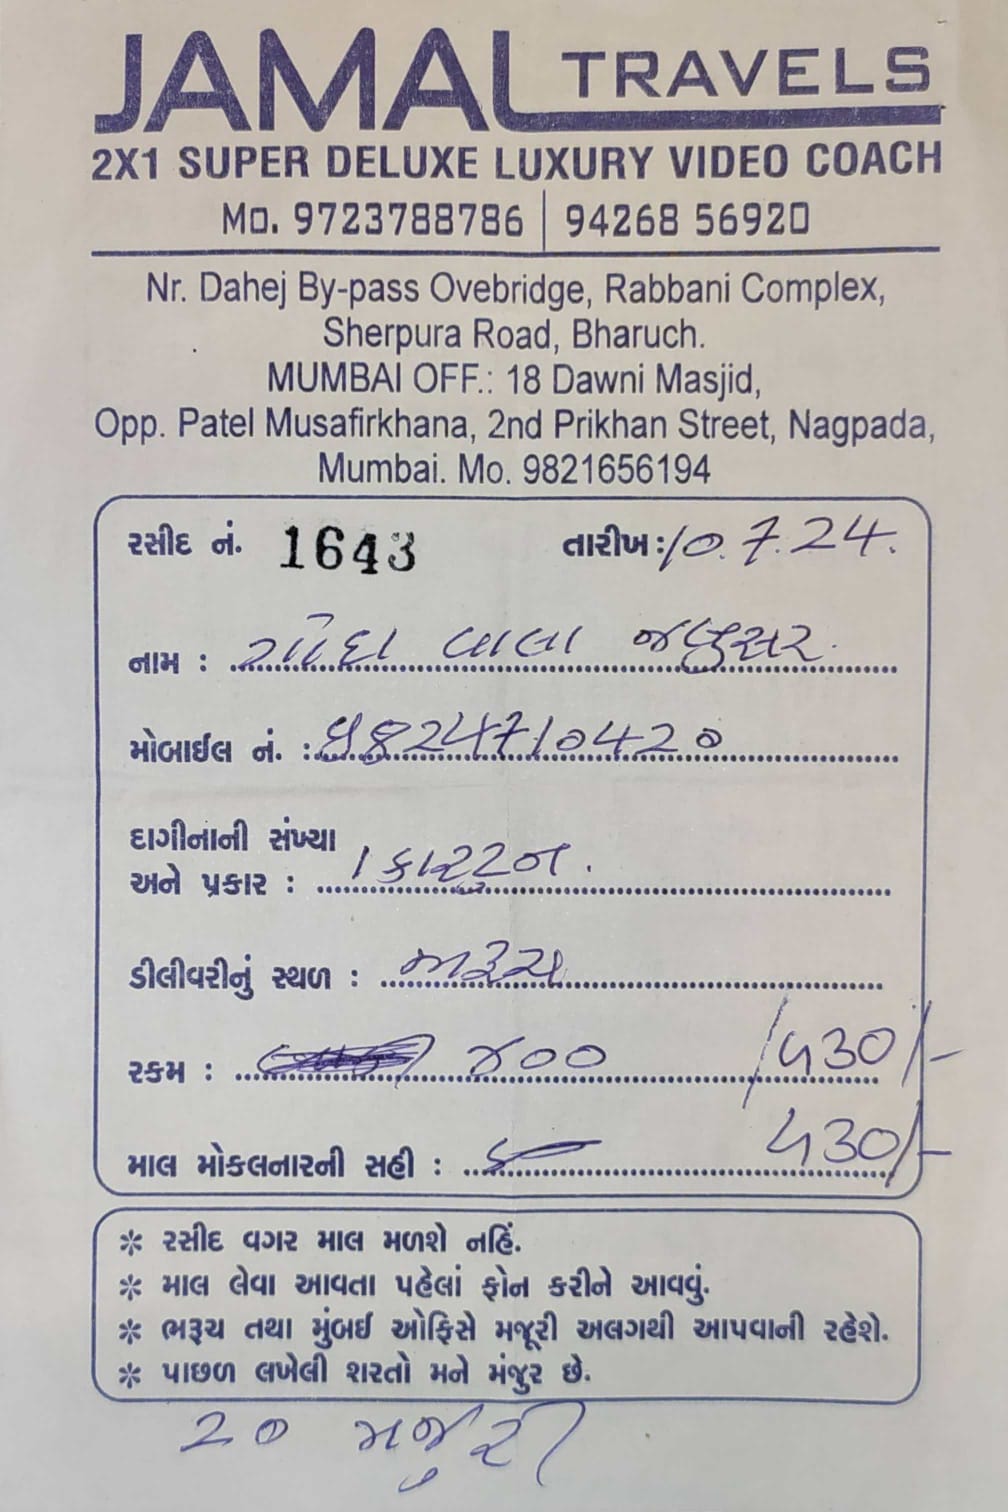 JAMAL TRAVELS
2X1 SUPER DELUXE LUXURY VIDEO COACH
Mo. 9723788786 | 94268 56920
Nr. Dahej By-pass Ovebridge, Rabbani Complex,
Sherpura Road, Bharuch.
MUMBAI OFF.: 18 Dawni Masjid,
Opp. Patel Musafirkhana, 2nd Prikhan Street, Nagpada,
Mumbai. Mo. 9821656194
રસીદ નં. 1643 તારીખ: 10.7.24.
નામ : વાલા જંબુસર
મોબાઈલ નં. : 9824710420
દાગીનાની સંખ્યા
અને પ્રકાર : 1 કારટુન.
ડીલીવરીનું સ્થળ : ભરૂચ
રકમ : ૪૦૦ ૫30/-
માલ મોકલનારની સહી : ૫30/-
* રસીદ વગર માલ મળશે નહિં.
* માલ લેવા આવતા પહેલાં ફોન કરીને આવવું.
* ભરૂચ તથા મુંબઈ ઓફિસે મજૂરી અલગથી આપવાની રહેશે.
* પાછળ લખેલી શરતો મને મંજુર છે.
20 મજુરી